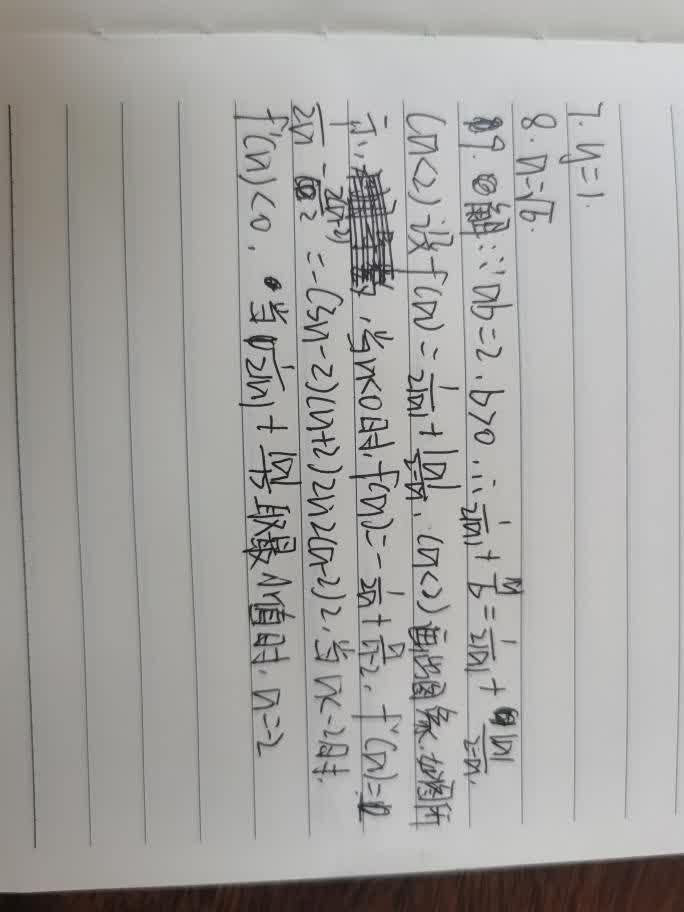 7. y=1.
8. a=√6.
9. 解∵ab=2. b>0. ∴ 1/2|a| + |a|/b = 1/2|a| + |a|/2-a.
(a<2) 设f(a) = 1/2|a| + |a|/2-a. (a<2) 画出图象. 如图所
示,, 当a<0时, f(a)=-1/2a + a/a-2. f'(a)=
1/2a2 - 2/(a-2) = -(3a-2)(a+2)2a2(a-2)2, 当a<-2时.
f'(a)<0. 当1/2|a| + |a|/b取最小值时. a=-2